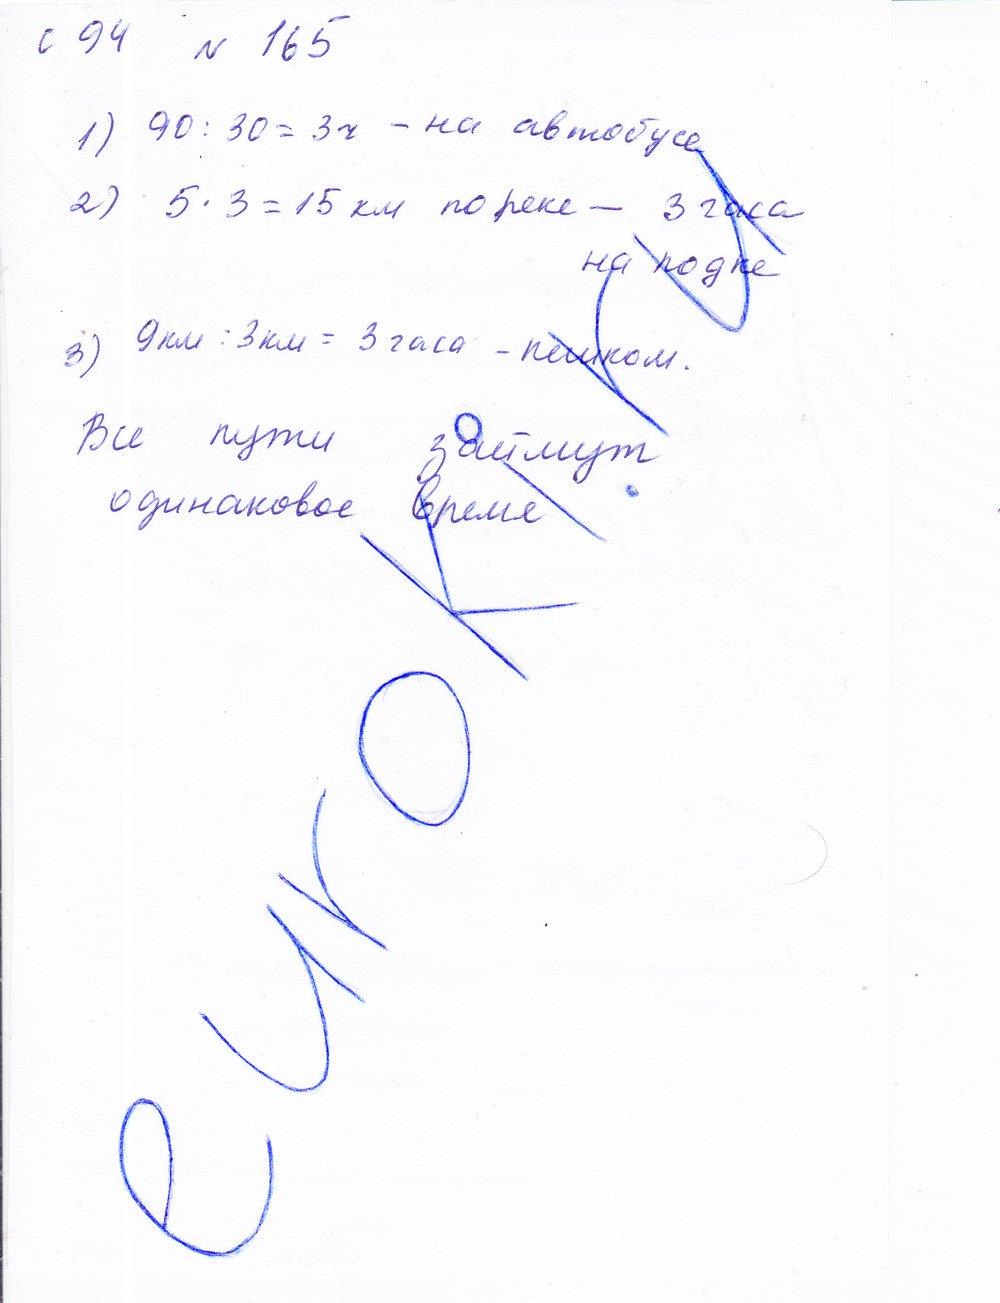 с 94 № 165
1) 90 : 30 = 3ч – на автобусе
2) 5 · 3 = 15 км по реке – 3 часа
на лодке
3) 9км : 3км = 3 часа – пешком.
Все пути займут
одинаковое время